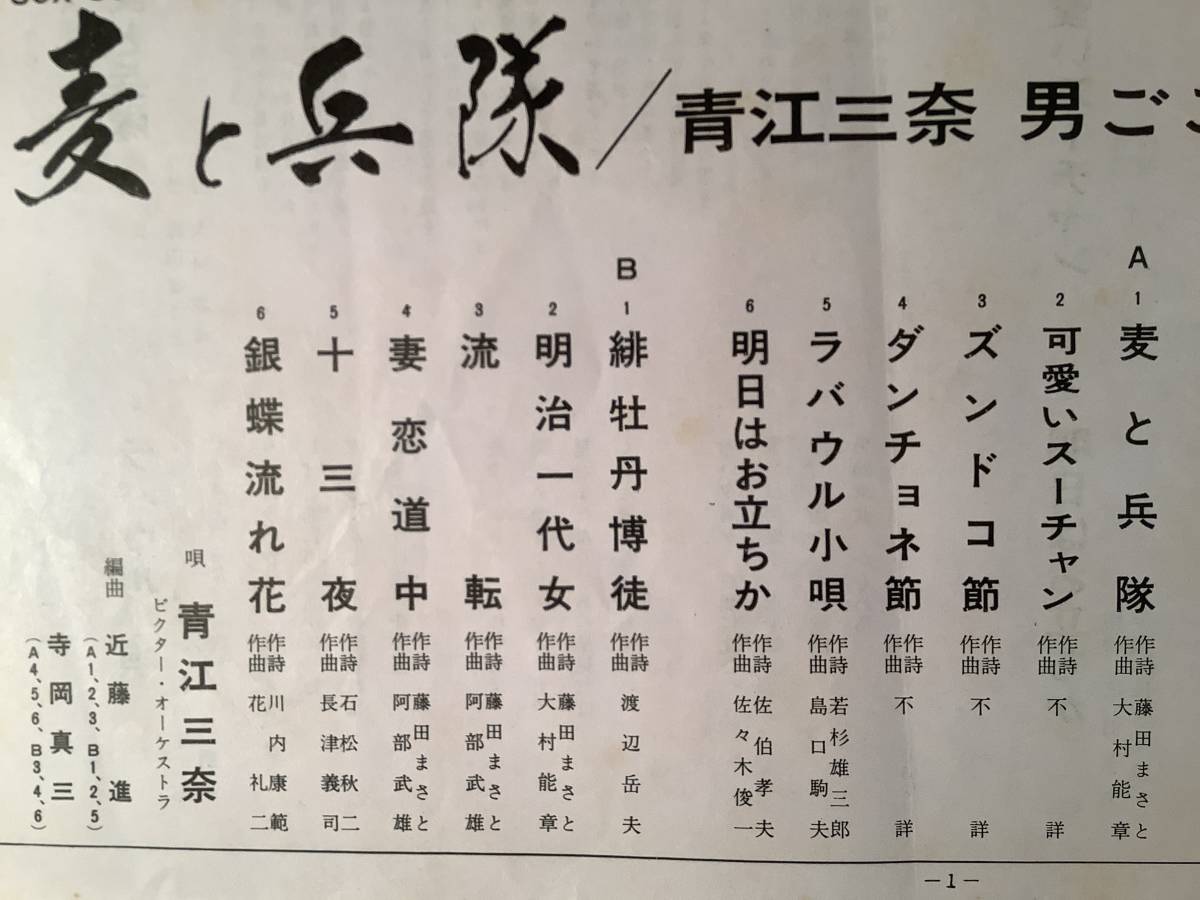 麦と兵隊/青江三奈 男ごこ
A
1 麦と兵隊 作詩 藤田まさと 作曲 大村能章
2 可愛いスーチャン 作詩 作曲 不詳
3 ズンドコ節 作詩 作曲 不詳
4 ダンチョネ節 作詩 作曲 不詳
5 ラバウル小唄 作詩 若杉雄三郎 作曲 島口駒夫
6 明日はお立ちか 作詩 佐伯孝夫 作曲 佐々木俊一
B
1 緋牡丹博徒 作詩 作曲 渡辺岳夫
2 明治一代女 作詩 藤田まさと 作曲 大村能章
3 流転 作詩 藤田まさと 作曲 阿部武雄
4 妻恋道中 作詩 藤田まさと 作曲 阿部武雄
5 十三夜 作詩 石松秋二 作曲 長津義司
6 銀蝶流れ花 作詩 川内康範 作曲 花礼二
唄 青江三奈
ビクター・オーケストラ
編曲 近藤進
(A1、2、3、B1、2、5)
寺岡真三
(A4、5、6、B3、4、6)
-1-